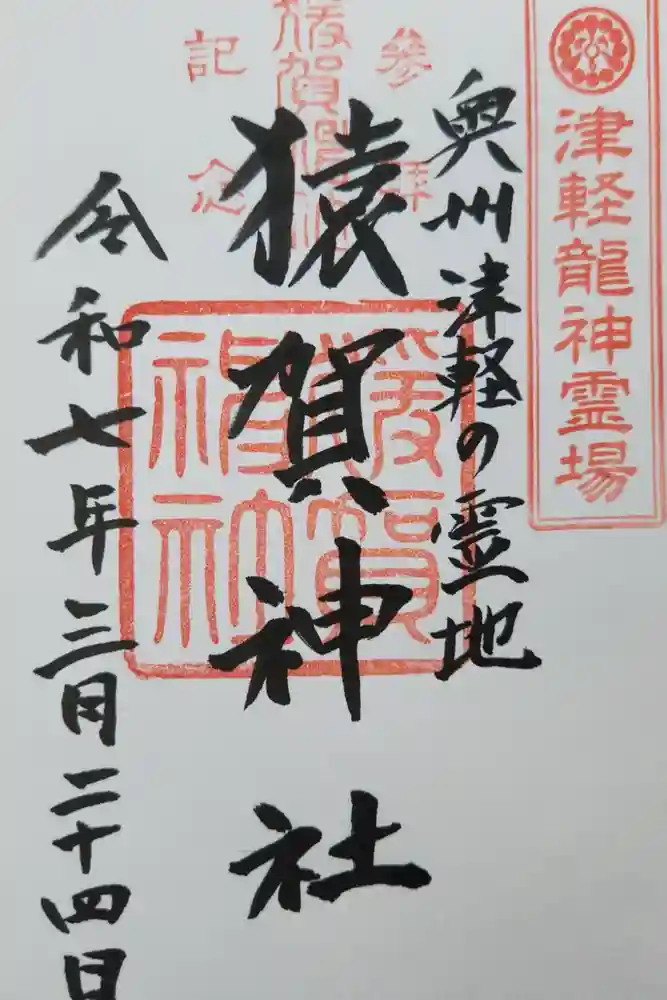 津軽龍神霊場
奥州津軽の霊地
参拝
猿賀神社
記念
令和七年三月二十四日